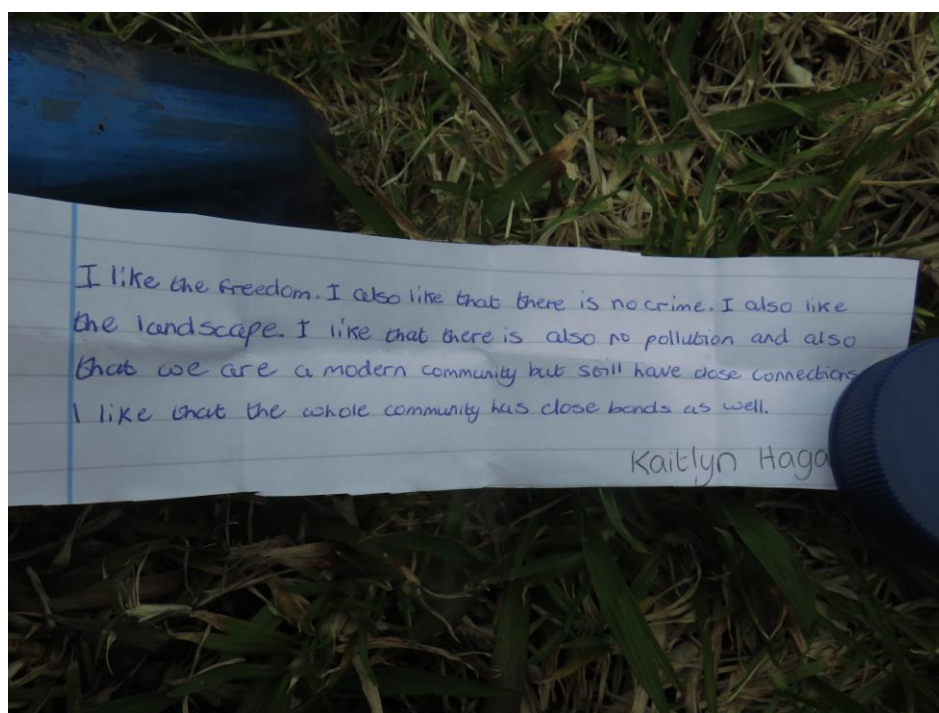 I like the freedom. I also like that there is no crime. I also like
the landscape. I like that there is also no pollution and also
that we are a modern community but still have close connections
I like that the whole community has close bonds as well.
Kaitlyn